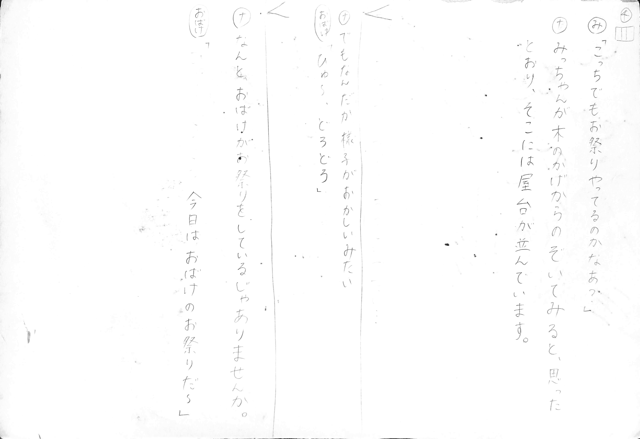 ④
み「こっちでもお祭りやってるのかなあっ」
ナ みっちゃんが木のかげからのぞいてみると、思った
とおり、そこには屋台が並んでいます。
ナ でもなんだか様子がおかしいみたい
おばけ「ひゅ〜、どろどろ」
ナ なんと、おばけがお祭りをしているじゃありませんか。
おばけ「今日はおばけのお祭りだ〜」